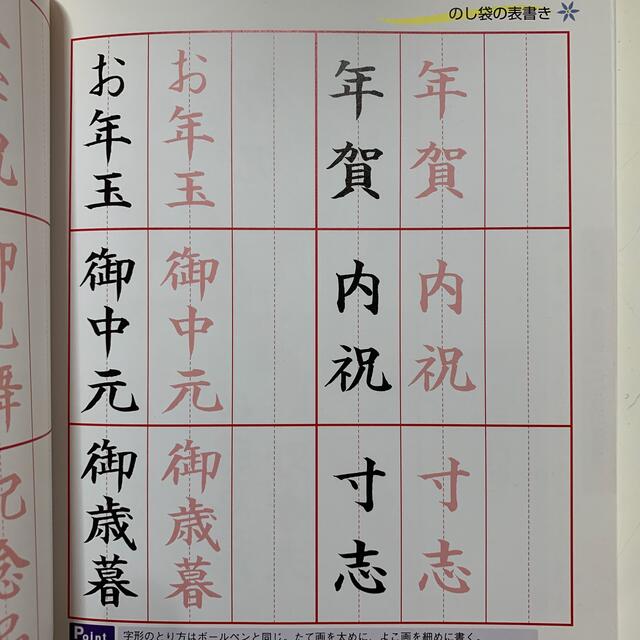 のし袋の表書き
年賀
年賀
お年玉
お年玉
内祝
内祝
御中元
御中元
寸志
寸志
御歳暮
御歳暮
Point 字形のとり方はボールペンと同じ。たて画を太めに、よこ画を細めに書く。